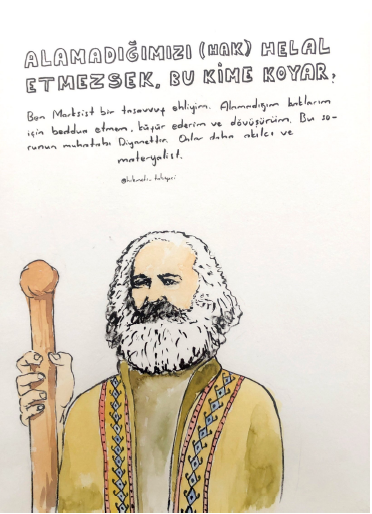 ALAMADIĞIMIZI (HAK) HELAL
ETMEZSEK, BU KİME KOYAR?
Ben Marksist bir tasavvuf ehliyim. Alamadığım haklarım
için beddua etmem, küfür ederim ve dövüşürüm. Bu so-
runun muhatabı Diyanettir. Onlar daha akılcı ve
materyalist.